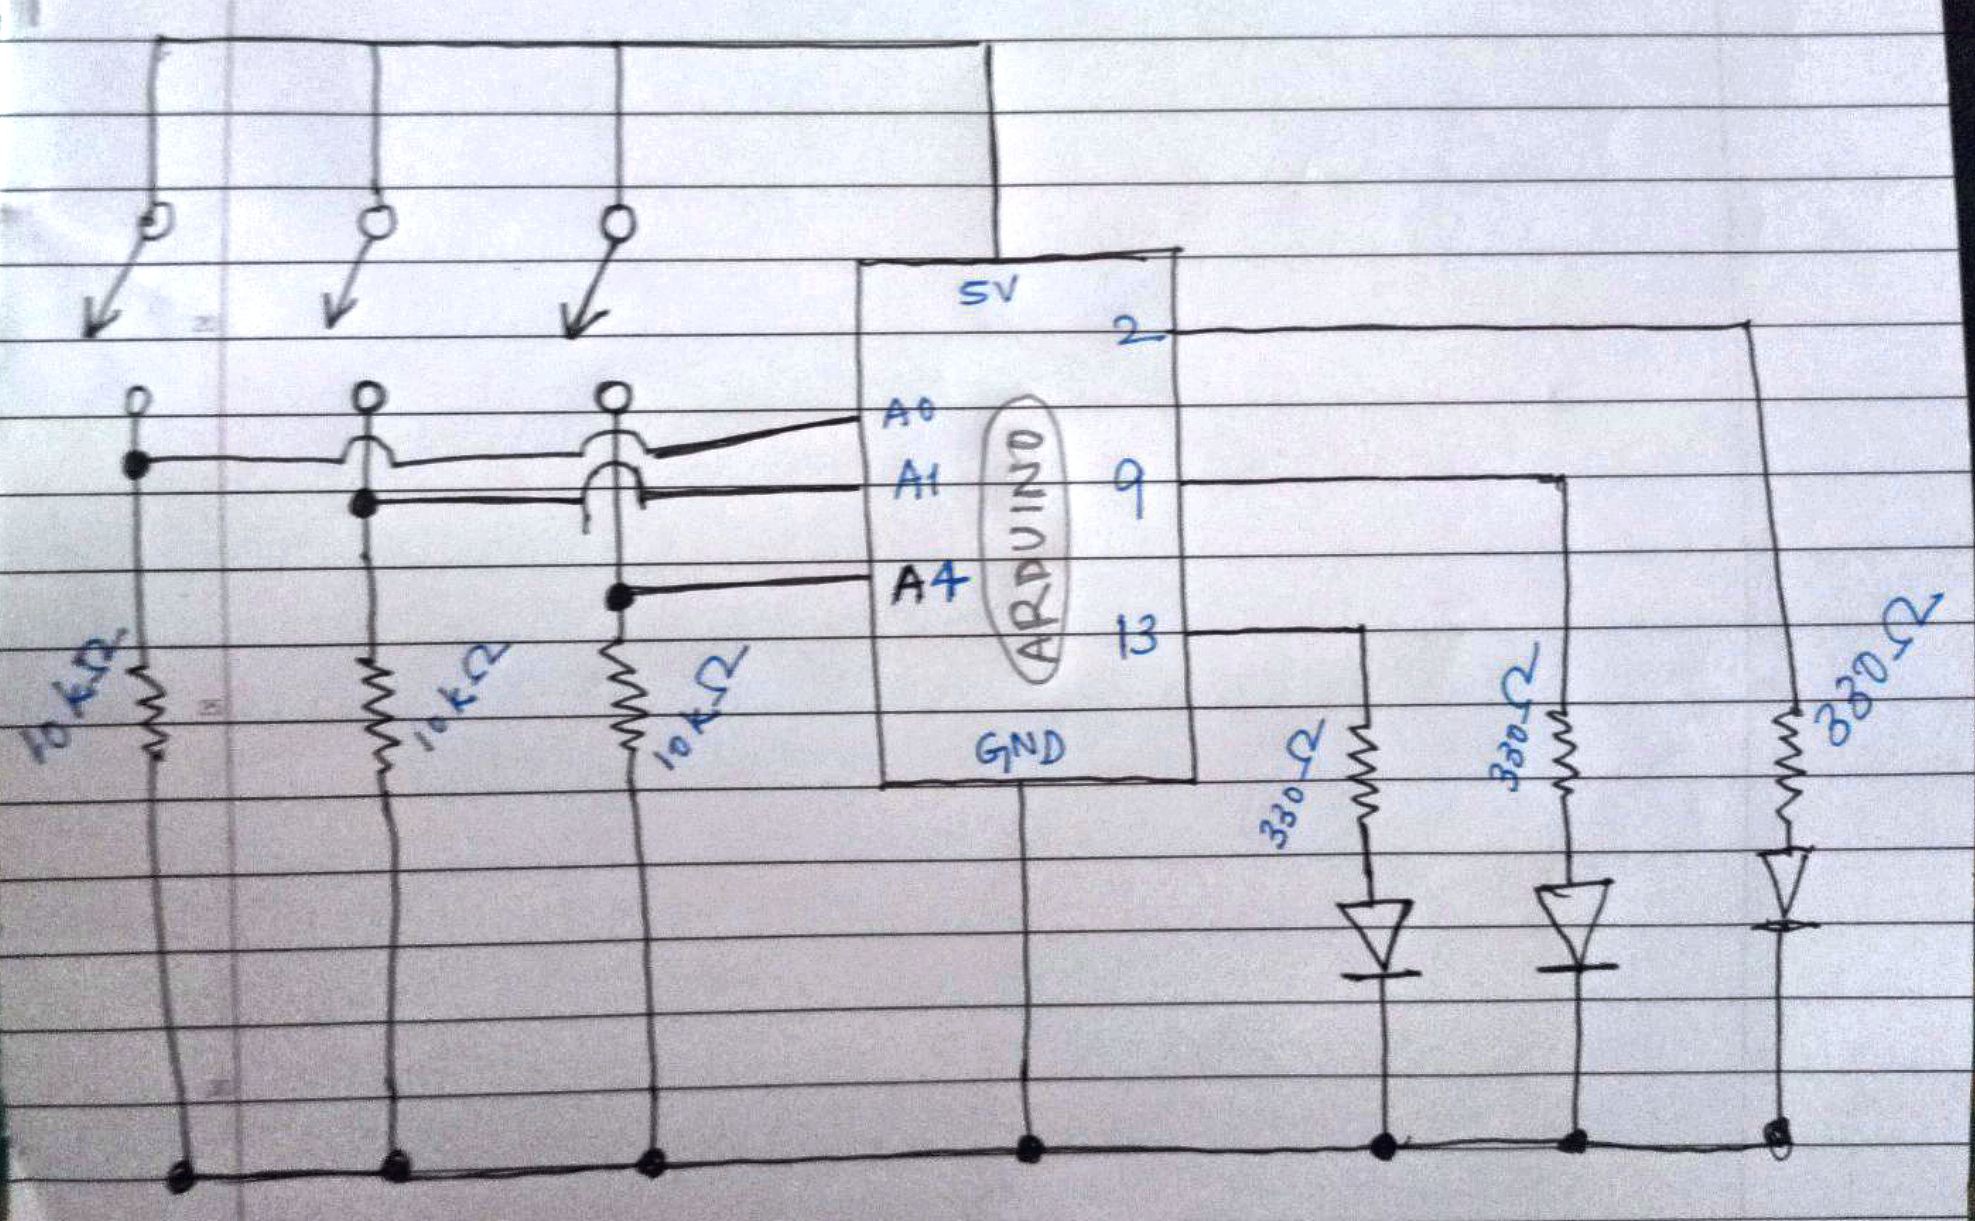 5V
2
A0
A1
9
A4
ARDUINO
13
10kΩ
10kΩ
10kΩ
GND
330Ω
330Ω
330Ω